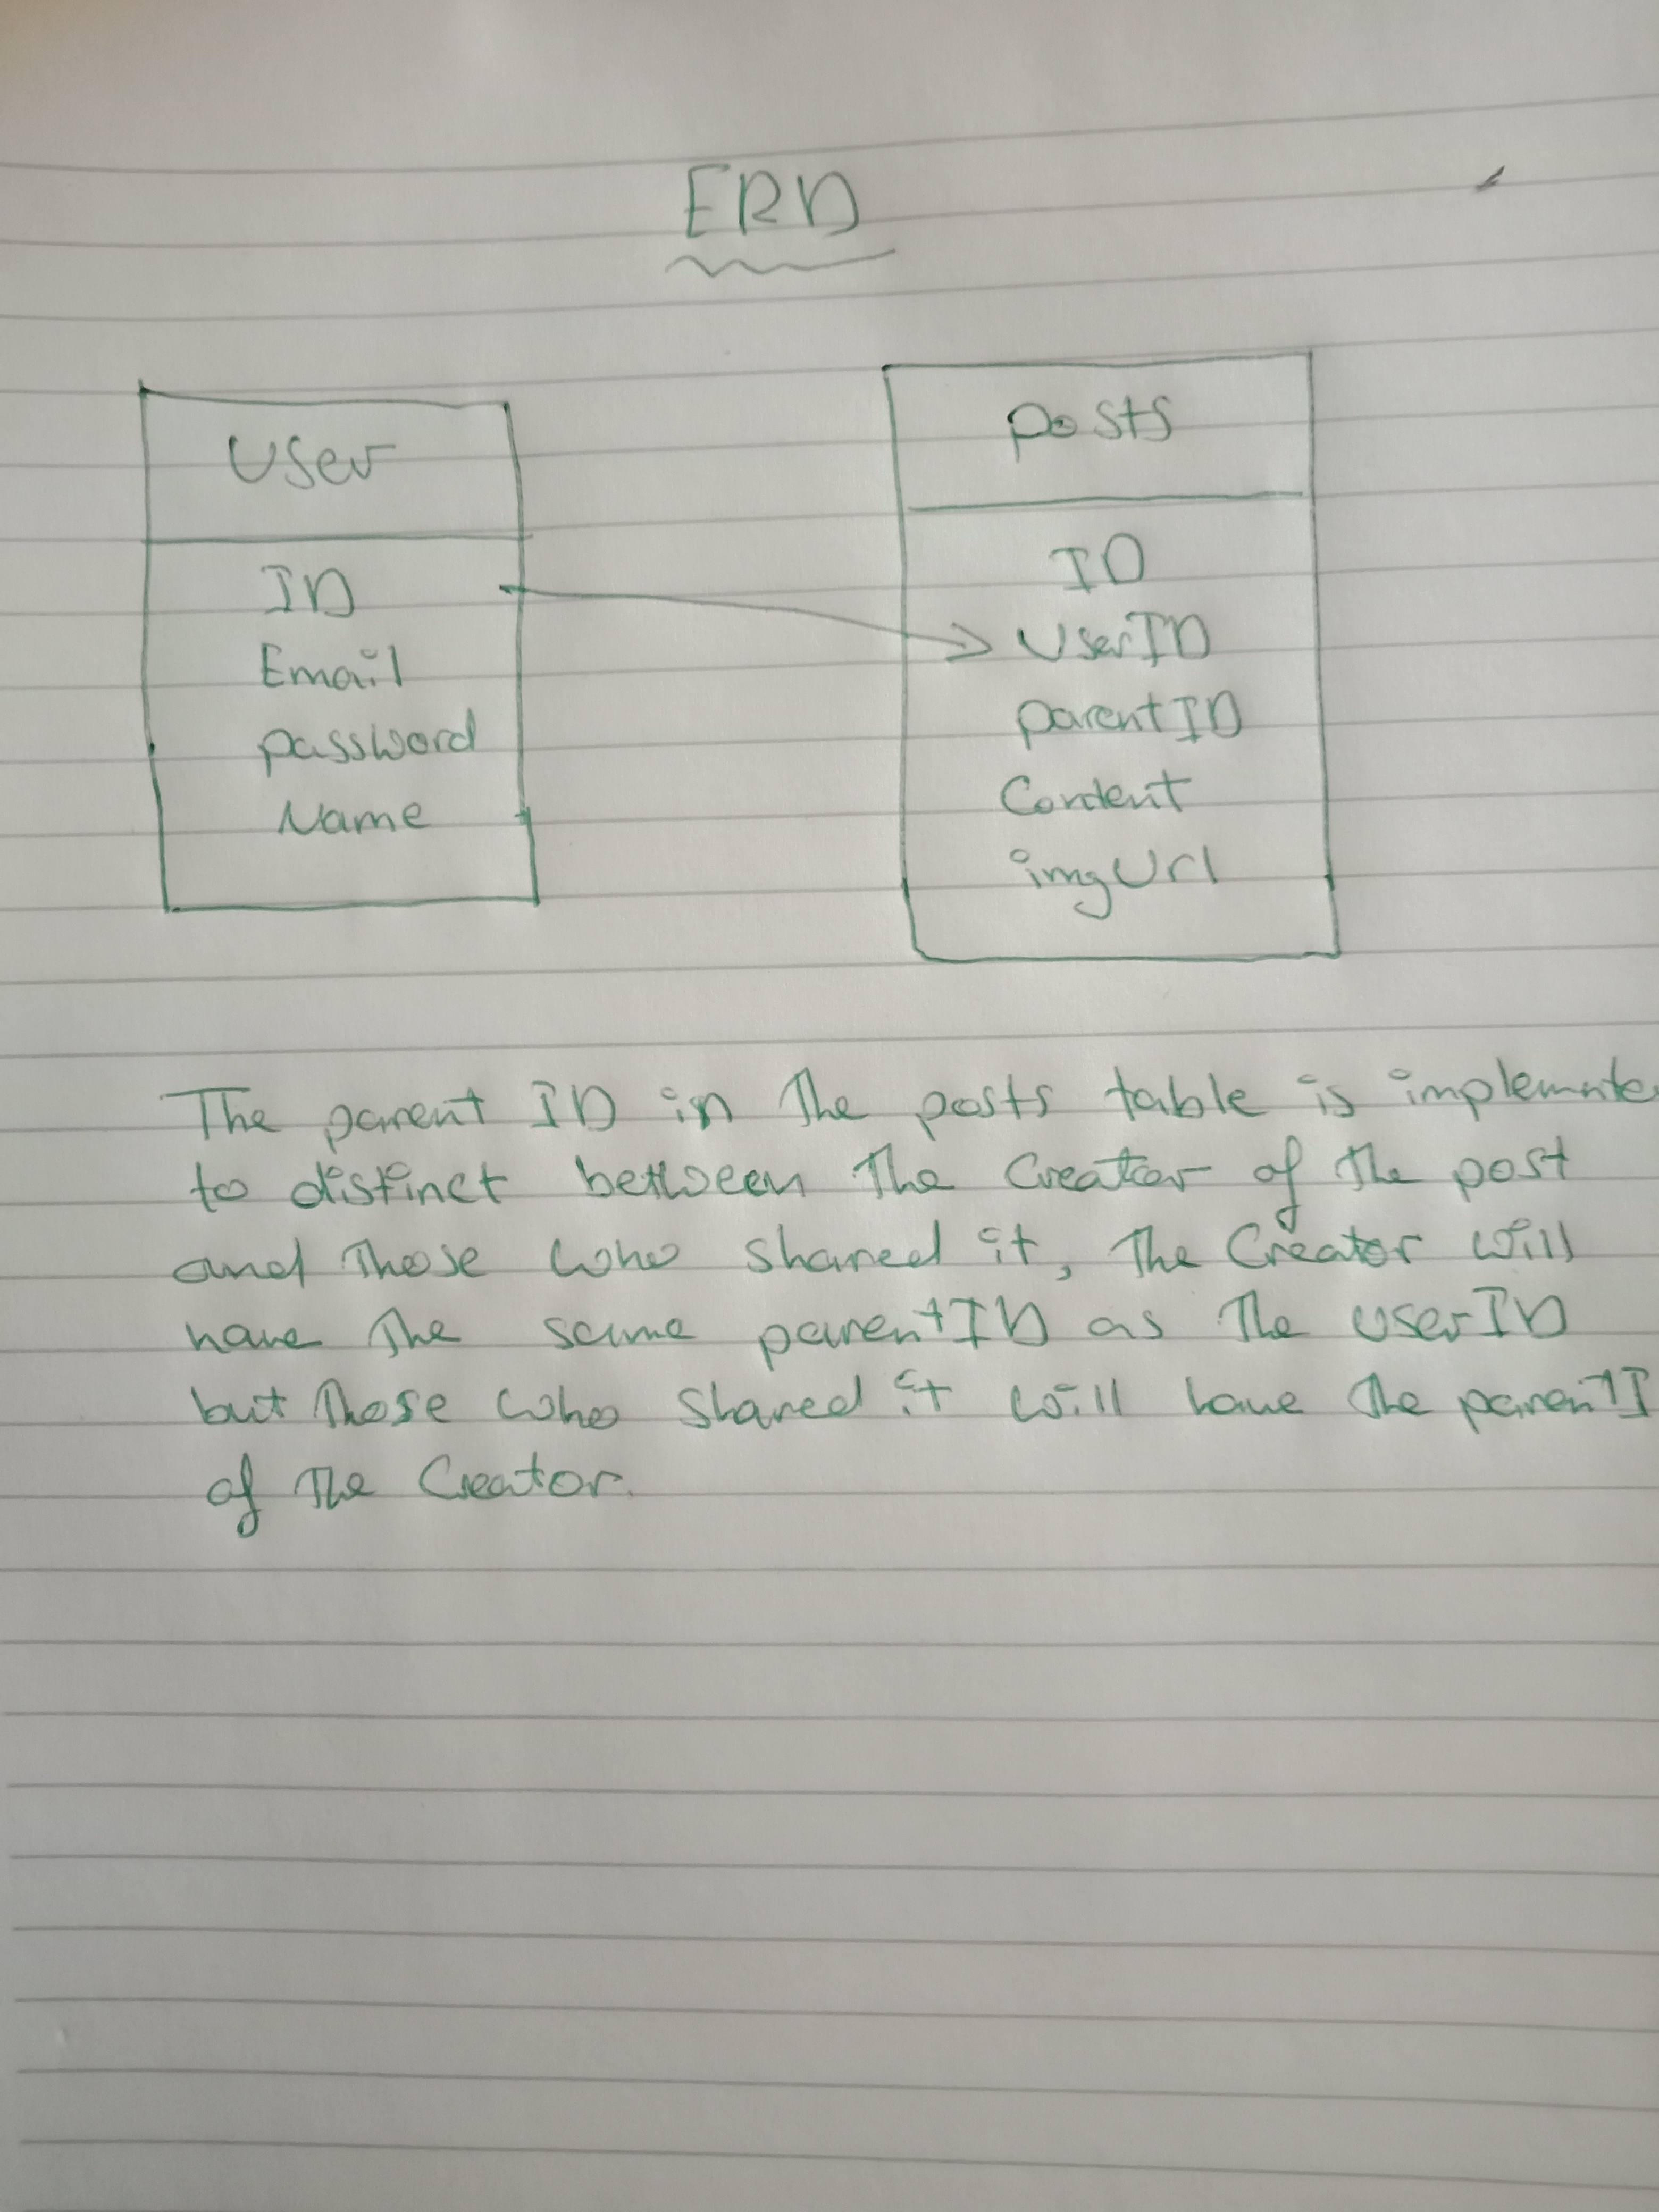 ERD
User
ID
Email
password
Name
posts
ID
UserID
parentID
Content
imgUrl
The parent ID in the posts table is implemente
to distinct between the Creator of the post
and those who shared it, the Creator will
have the same parentID as the userID
but those who shared it will have the parentI
of the Creator.